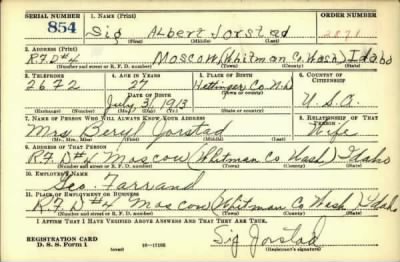 SERIAL NUMBER 1. NAME (Print) ORDER NUMBER
854 Sig Albert Jorstad 2871
(First) (Middle) (Last)
2. ADDRESS (Print)
R.F.D #4 Moscow (Whitman Co. Wash) Idaho
(Number and street or R. F. D. number) (Town) (County) (State)
3. TELEPHONE 4. AGE IN YEARS 5. PLACE OF BIRTH 6. COUNTRY OF CITIZENSHIP
2672 27 Hettinger Co. N.D
DATE OF BIRTH (Town or county)
July 31 1913 U.S.A.
(Exchange) (Number) (Mo.) (Day) (Yr.) (State or country)
7. NAME OF PERSON WHO WILL ALWAYS KNOW YOUR ADDRESS 8. RELATIONSHIP OF THAT PERSON
Mrs Beryl Jorstad Wife
(Mr., Mrs., Miss) (First) (Middle) (Last)
9. ADDRESS OF THAT PERSON
R.F.D #4 Moscow (Whitman Co Wash.) Idaho
(Number and street or R. F. D. number) (Town) (County) (State)
10. EMPLOYER'S NAME
Geo. Farrand
11. PLACE OF EMPLOYMENT OR BUSINESS
R.F.D #4 Moscow (Whitman Co Wash.) Idaho
(Number and street or R. F. D. number) (Town) (County) (State)
I AFFIRM THAT I HAVE VERIFIED ABOVE ANSWERS AND THAT THEY ARE TRUE.
REGISTRATION CARD
D. S. S. Form 1 (over) 16—17105 Sig Jorstad
(Registrant's signature)